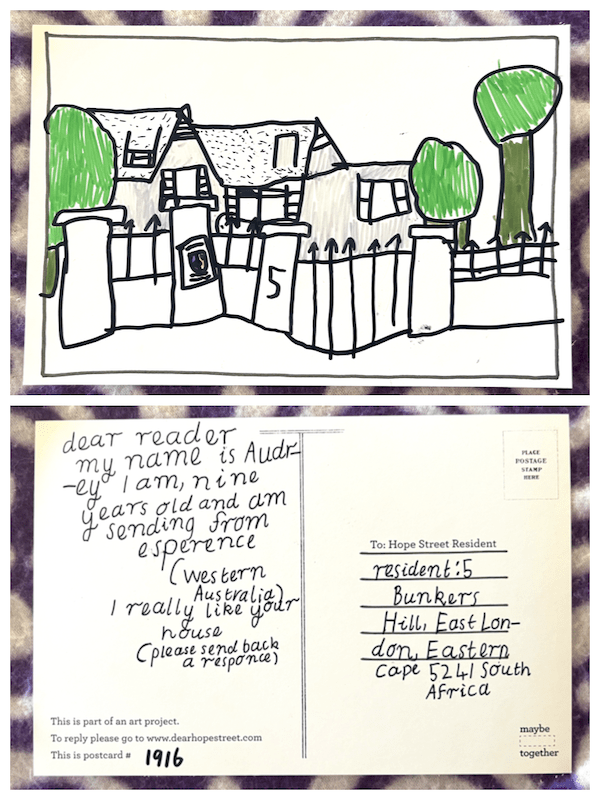 5
dear reader
my name is Audr-
-ey I am, nine
years old and am
sending from
esperence
(western
Australia)
I really like your
house
(please send back
a responce)
This is part of an art project.
To reply please go to www.dearhopestreet.com
This is postcard # 1916
PLACE
POSTAGE
STAMP
HERE
To: Hope Street Resident
resident:5
Bunkers
Hill, East Lon-
don, Eastern
Cape 5241 South
Africa
maybe
together